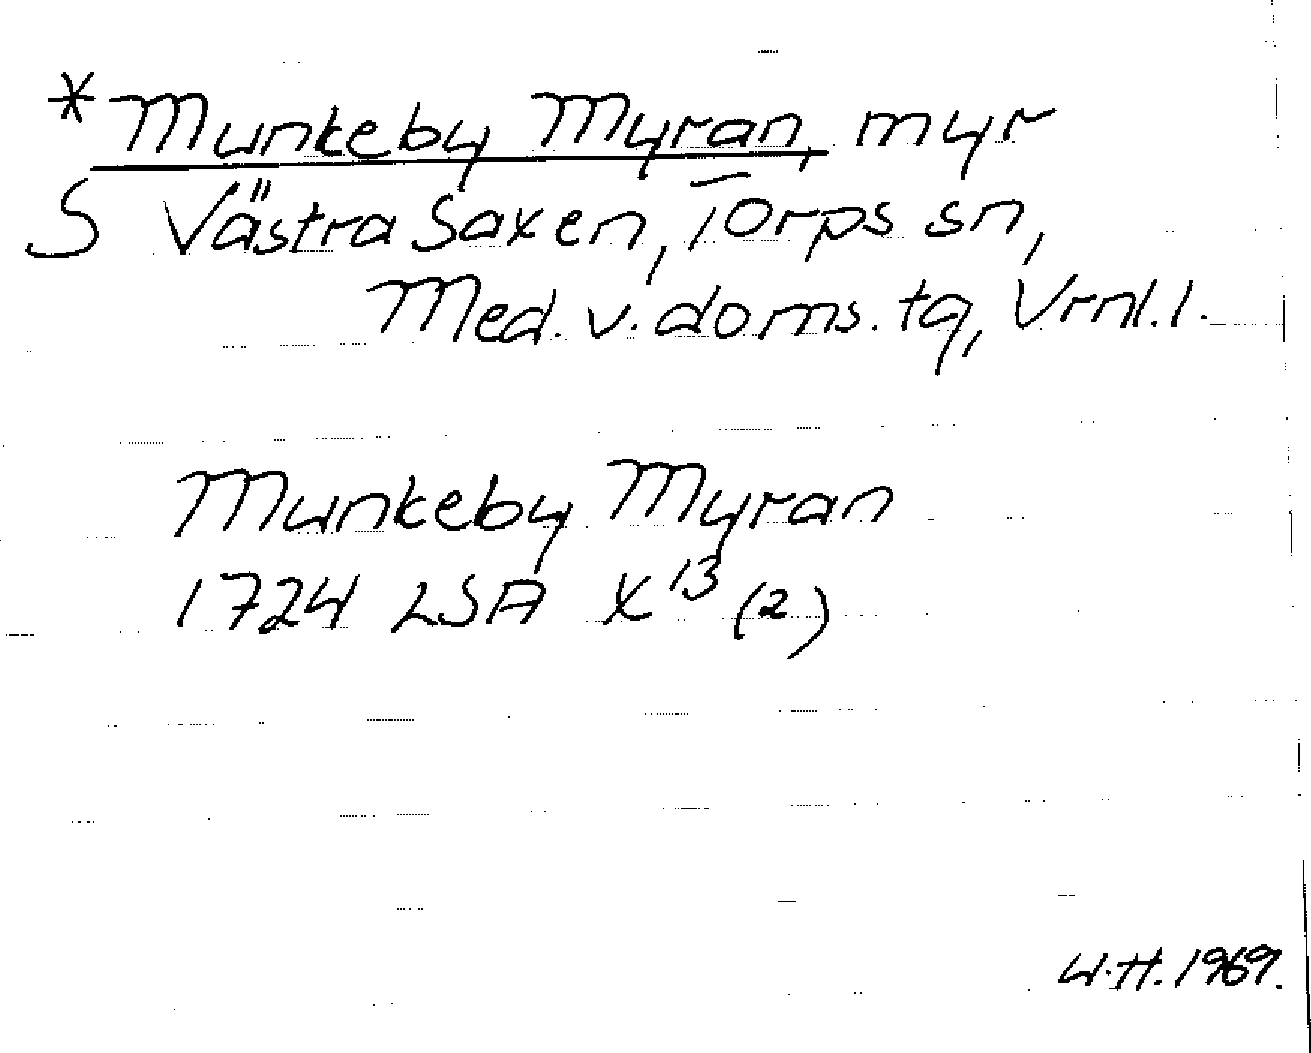 *Munkeby Myran, myr
S Västra Saxen, Torps sn,
Med. v. doms. tg, Vrml. l.
Munkeby Myran
1724 LSA X¹³ (2)
U.H. 1969.